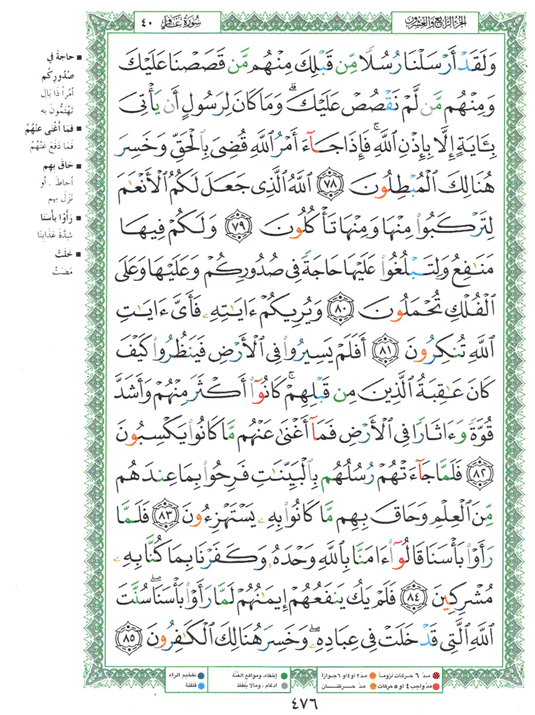 سُورَةُ غَافِرٍ ٤٠
الجزء الرابع والعشرون
وَلَقَدْ أَرْسَلْنَا رُسُلًا مِّن قَبْلِكَ مِنْهُم مَّن قَصَصْنَا عَلَيْكَ
وَمِنْهُم مَّن لَّمْ نَقْصُصْ عَلَيْكَ ۗ وَمَا كَانَ لِرَسُولٍ أَن يَأْتِىَ
بِـَٔايَةٍ إِلَّا بِإِذْنِ ٱللَّهِ ۚ فَإِذَا جَآءَ أَمْرُ ٱللَّهِ قُضِىَ بِٱلْحَقِّ وَخَسِرَ
هُنَالِكَ ٱلْمُبْطِلُونَ ٧٨ ٱللَّهُ ٱلَّذِى جَعَلَ لَكُمُ ٱلْأَنْعَٰمَ
لِتَرْكَبُوا۟ مِنْهَا وَمِنْهَا تَأْكُلُونَ ٧٩ وَلَكُمْ فِيهَا
مَنَٰفِعُ وَلِتَبْلُغُوا۟ عَلَيْهَا حَاجَةً فِى صُدُورِكُمْ وَعَلَيْهَا وَعَلَى
ٱلْفُلْكِ تُحْمَلُونَ ٨٠ وَيُرِيكُمْ ءَايَٰتِهِۦ فَأَىَّ ءَايَٰتِ
ٱللَّهِ تُنكِرُونَ ٨١ أَفَلَمْ يَسِيرُوا۟ فِى ٱلْأَرْضِ فَيَنظُرُوا۟ كَيْفَ
كَانَ عَٰقِبَةُ ٱلَّذِينَ مِن قَبْلِهِمْ ۚ كَانُوٓا۟ أَكْثَرَ مِنْهُمْ وَأَشَدَّ
قُوَّةً وَءَاثَارًا فِى ٱلْأَرْضِ فَمَآ أَغْنَىٰ عَنْهُم مَّا كَانُوا۟ يَكْسِبُونَ
٨٢ فَلَمَّا جَآءَتْهُمْ رُسُلُهُم بِٱلْبَيِّنَٰتِ فَرِحُوا۟ بِمَا عِندَهُم
مِّنَ ٱلْعِلْمِ وَحَاقَ بِهِم مَّا كَانُوا۟ بِهِۦ يَسْتَهْزِءُونَ ٨٣ فَلَمَّا
رَأَوْا۟ بَأْسَنَا قَالُوٓا۟ ءَامَنَّا بِٱللَّهِ وَحْدَهُۥ وَكَفَرْنَا بِمَا كُنَّا بِهِۦ
مُشْرِكِينَ ٨٤ فَلَمْ يَكُ يَنفَعُهُمْ إِيمَٰنُهُمْ لَمَّا رَأَوْا۟ بَأْسَنَا ۖ سُنَّتَ
ٱللَّهِ ٱلَّتِى قَدْ خَلَتْ فِى عِبَادِهِۦ ۖ وَخَسِرَ هُنَالِكَ ٱلْكَٰفِرُونَ ٨٥
حاجةً في
صُدُورِكُم
أمراً ذا بَالٍ
تَهْتَمُّونَ به
فَمَا أَغْنَى عَنْهُمْ
فَمَا دَفَعَ عَنْهُمْ
حَاقَ بِهِم
أحاطَ . أو
نَزَلَ بِهِم
رَأَوْا بَأْسَنَا
شِدَّةَ عَذَابِنَا
خَلَتْ
مَضَتْ
مدّ ٦ حركات لزوماً
مدّ ٢ أو ٤ أو ٦ جوازاً
إخفاء، ومواقع الغُنَّة
تفخيم الراء
مدّ واجب ٤ أو ٥ حركات
مدّ حركتان
ادغام ، وما لا يُلفظ
قلقلة
٤٧٦